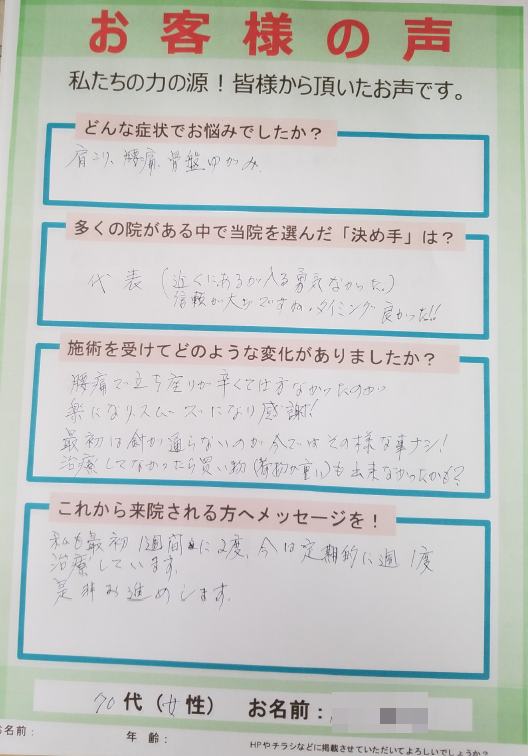 お客様の声
私たちの力の源！皆様から頂いたお声です。
どんな症状でお悩みでしたか？
肩こり、腰痛、骨盤ゆがみ
多くの院がある中で当院を選んだ「決め手」は？
代表（近くにあるが入る勇気なかった。）
信頼が大切ですね、タイミング良かった!!
施術を受けてどのような変化がありましたか？
腰痛で立ち座りが辛くて仕方なかったのが
楽になりスムーズになり感謝！
最初は針が通らないのが今ではその様な事ナシ！
治療してなかったら買い物（荷物が重い）も出来なかったかも？
これから来院される方へメッセージを！
私も最初1週間に2度、今は定期的に週1度
治療しています。
是非お進めします。
70代（女性） お名前：
お名前： 年齢：
HPやチラシなどに掲載させていただいてよろしいでしょうか？